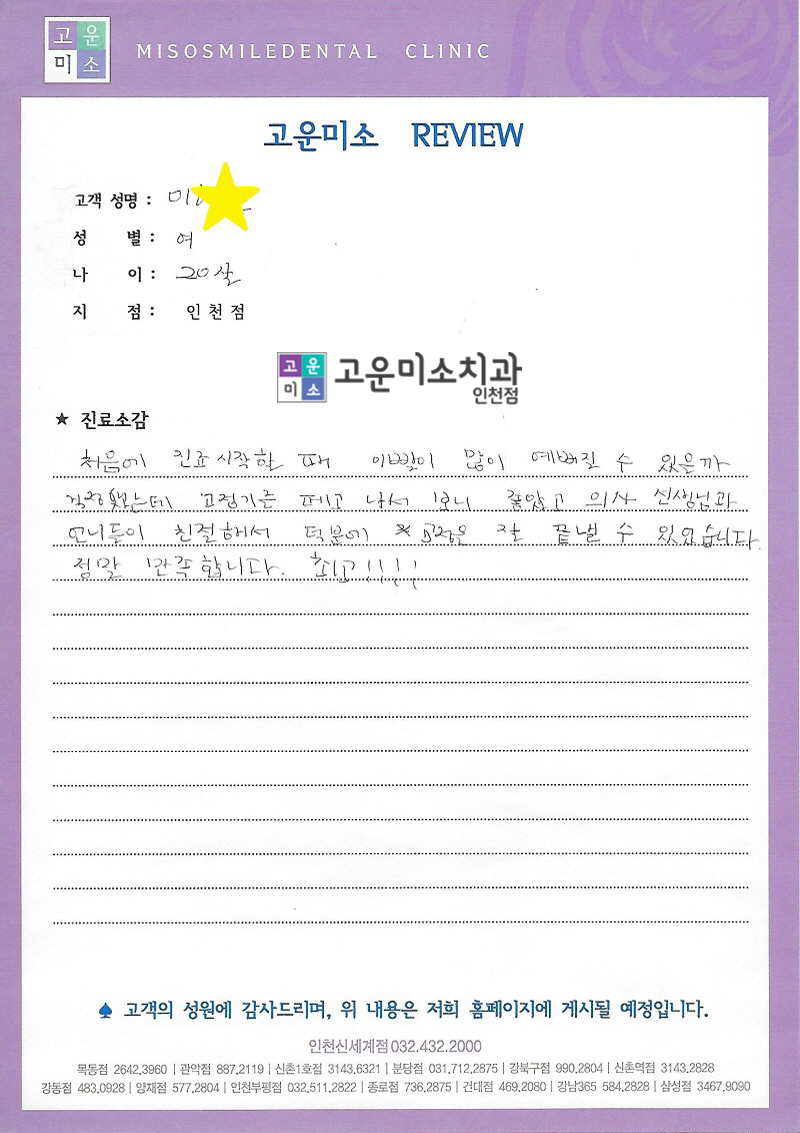 고운
미소
MISOSMILEDENTAL CLINIC
고운미소 REVIEW
고객 성명 :
성 별 : 여
나 이 : 20살
지 점 : 인천점
고운
미소
고운미소치과
인천점
★ 진료소감
처음에 진료 시작할 때 이빨이 많이 예뻐질 수 있을까
걱정했는데 교정기를 떼고 나서 보니 좋았고 의사 선생님과
언니들이 친절해서 덕분에 교정을 잘 끝낼 수 있었습니다.
정말 만족합니다. 최고!!!!
♠ 고객의 성원에 감사드리며, 위 내용은 저희 홈페이지에 게시될 예정입니다.
인천신세계점 032.432.2000
목동점 2642.3960 | 관악점 887.2119 | 신촌1호점 3143.6321 | 분당점 031.712.2875 | 강북구점 990.2804 | 신촌역점 3143.2828
강동점 483.0928 | 양재점 577.2804 | 인천부평점 032.511.2822 | 종로점 736.2875 | 건대점 469.2080 | 강남365 584.2828 | 삼성점 3467.9090